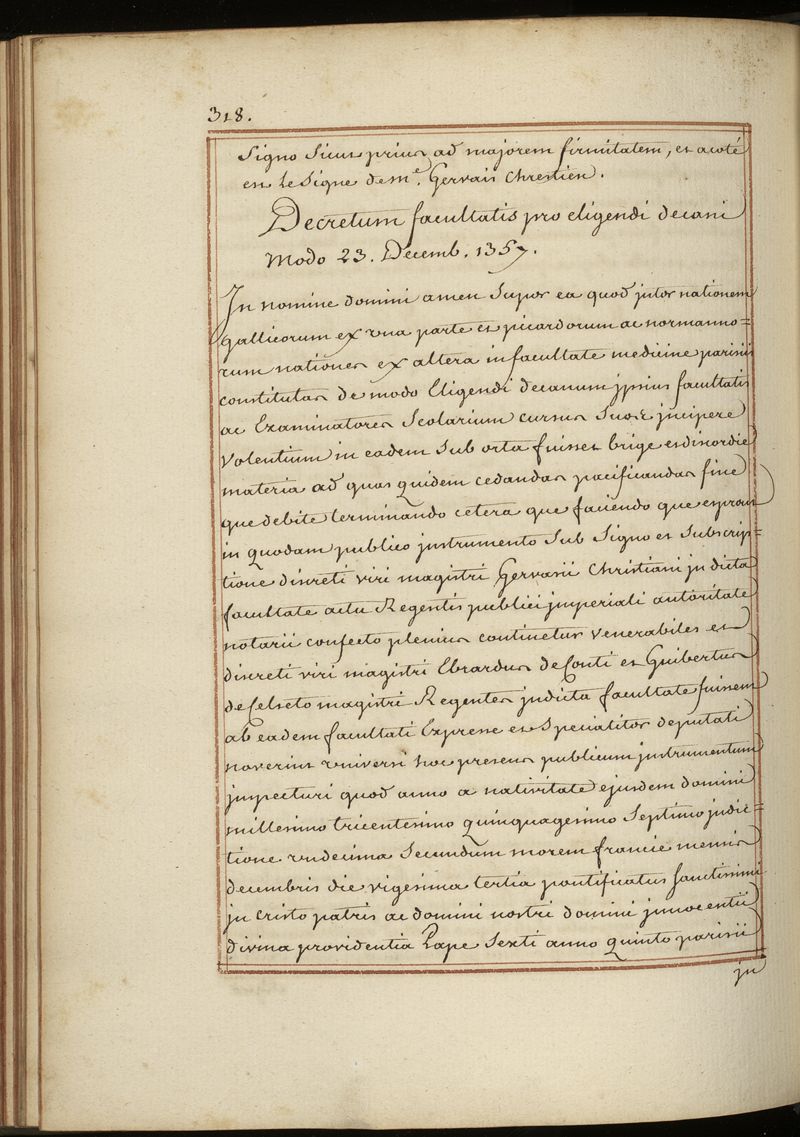 318.
Signo Sicut prius ad majorem firmitatem, et acoté
en Le Signe de me. Gervais Chrestien.
Decretum facultatis pro eligendi decani
Modo 23. Decemb. 1357.
In nomine domini amen Super ea quod inter nationem
gallicorum ex una parte et picardorum ac normanno=
rum nationes ex altera in facultate medicine parisii
constitutas de modo Eligendi decanum jpsius facultatis
ac Examinatores Scolarium cursus Suos jncipere
Volentium in eadem Sub orta fuisset brige et discordie
materia ad quas quidem cedandas pacificandas fine
que debite terminando cetera que faciendo que
in quodam publico jnstrumento Sub Signo et Subscrip=
tione discreti viri magistri Gervasii Christiani jn dicta
facultate actu Regentis publici jmperiali autoritate
notarii confecto plenius continetur Venerabiles et
discreti viri magistri Ebrardus de Conti et Guibertus
de Celseto magistri Regentes jndicta facultate fuissent
ab eadem facultati Expresse et Specialiter deputati
noverint universi hoc presens publicum jnstrumentum
jnspecturi quod anno a nativitate ejusdem domini
millesimo tricentesimo quinquagesimo Septimo jndic=
tione undecima Secundum morem francie mensis
decembris die vigesima tertia pontificatus Sanctissimi
jn Cristo patris ac domini nostri domini jnnocentii
divina providentia Pape Sexti anno quinto parisii
jn